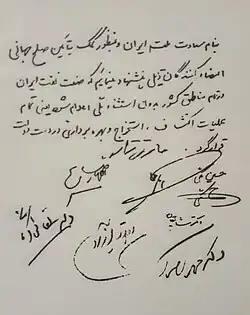 بنام سعادت ملت ایران و بمنظور کمک بتأمین صلح جهانی
امضاء کنندگان ذیل پیشنهاد مینمائیم که صنعت نفت ایران
در تمام مناطق کشور بدون استثناء ملی اعلام شود یعنی تمام
عملیات اکتشاف، استخراج و بهره برداری در دست دولت
قرار گیرد.
حائری زاده
اللهیار صالح
حسین مکی
دکتر شایگان
دکتر مصدق